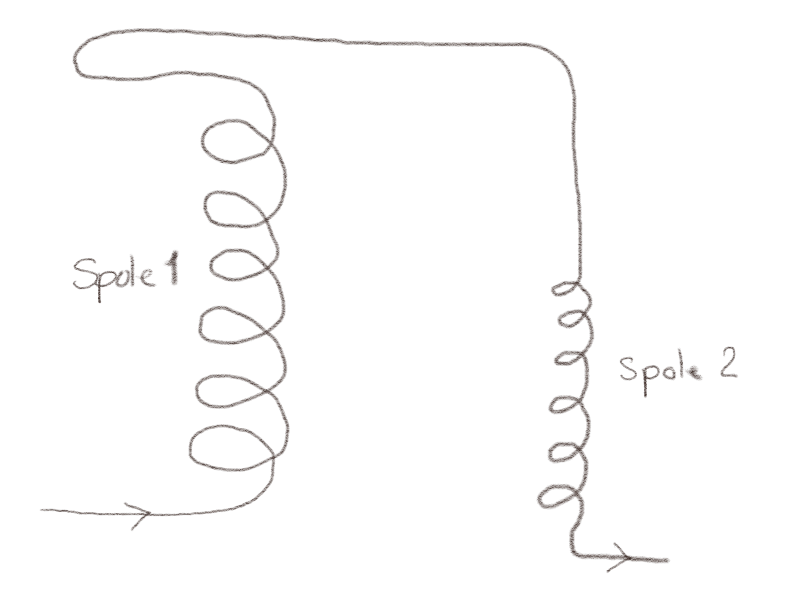 Spole 1
Spole 2